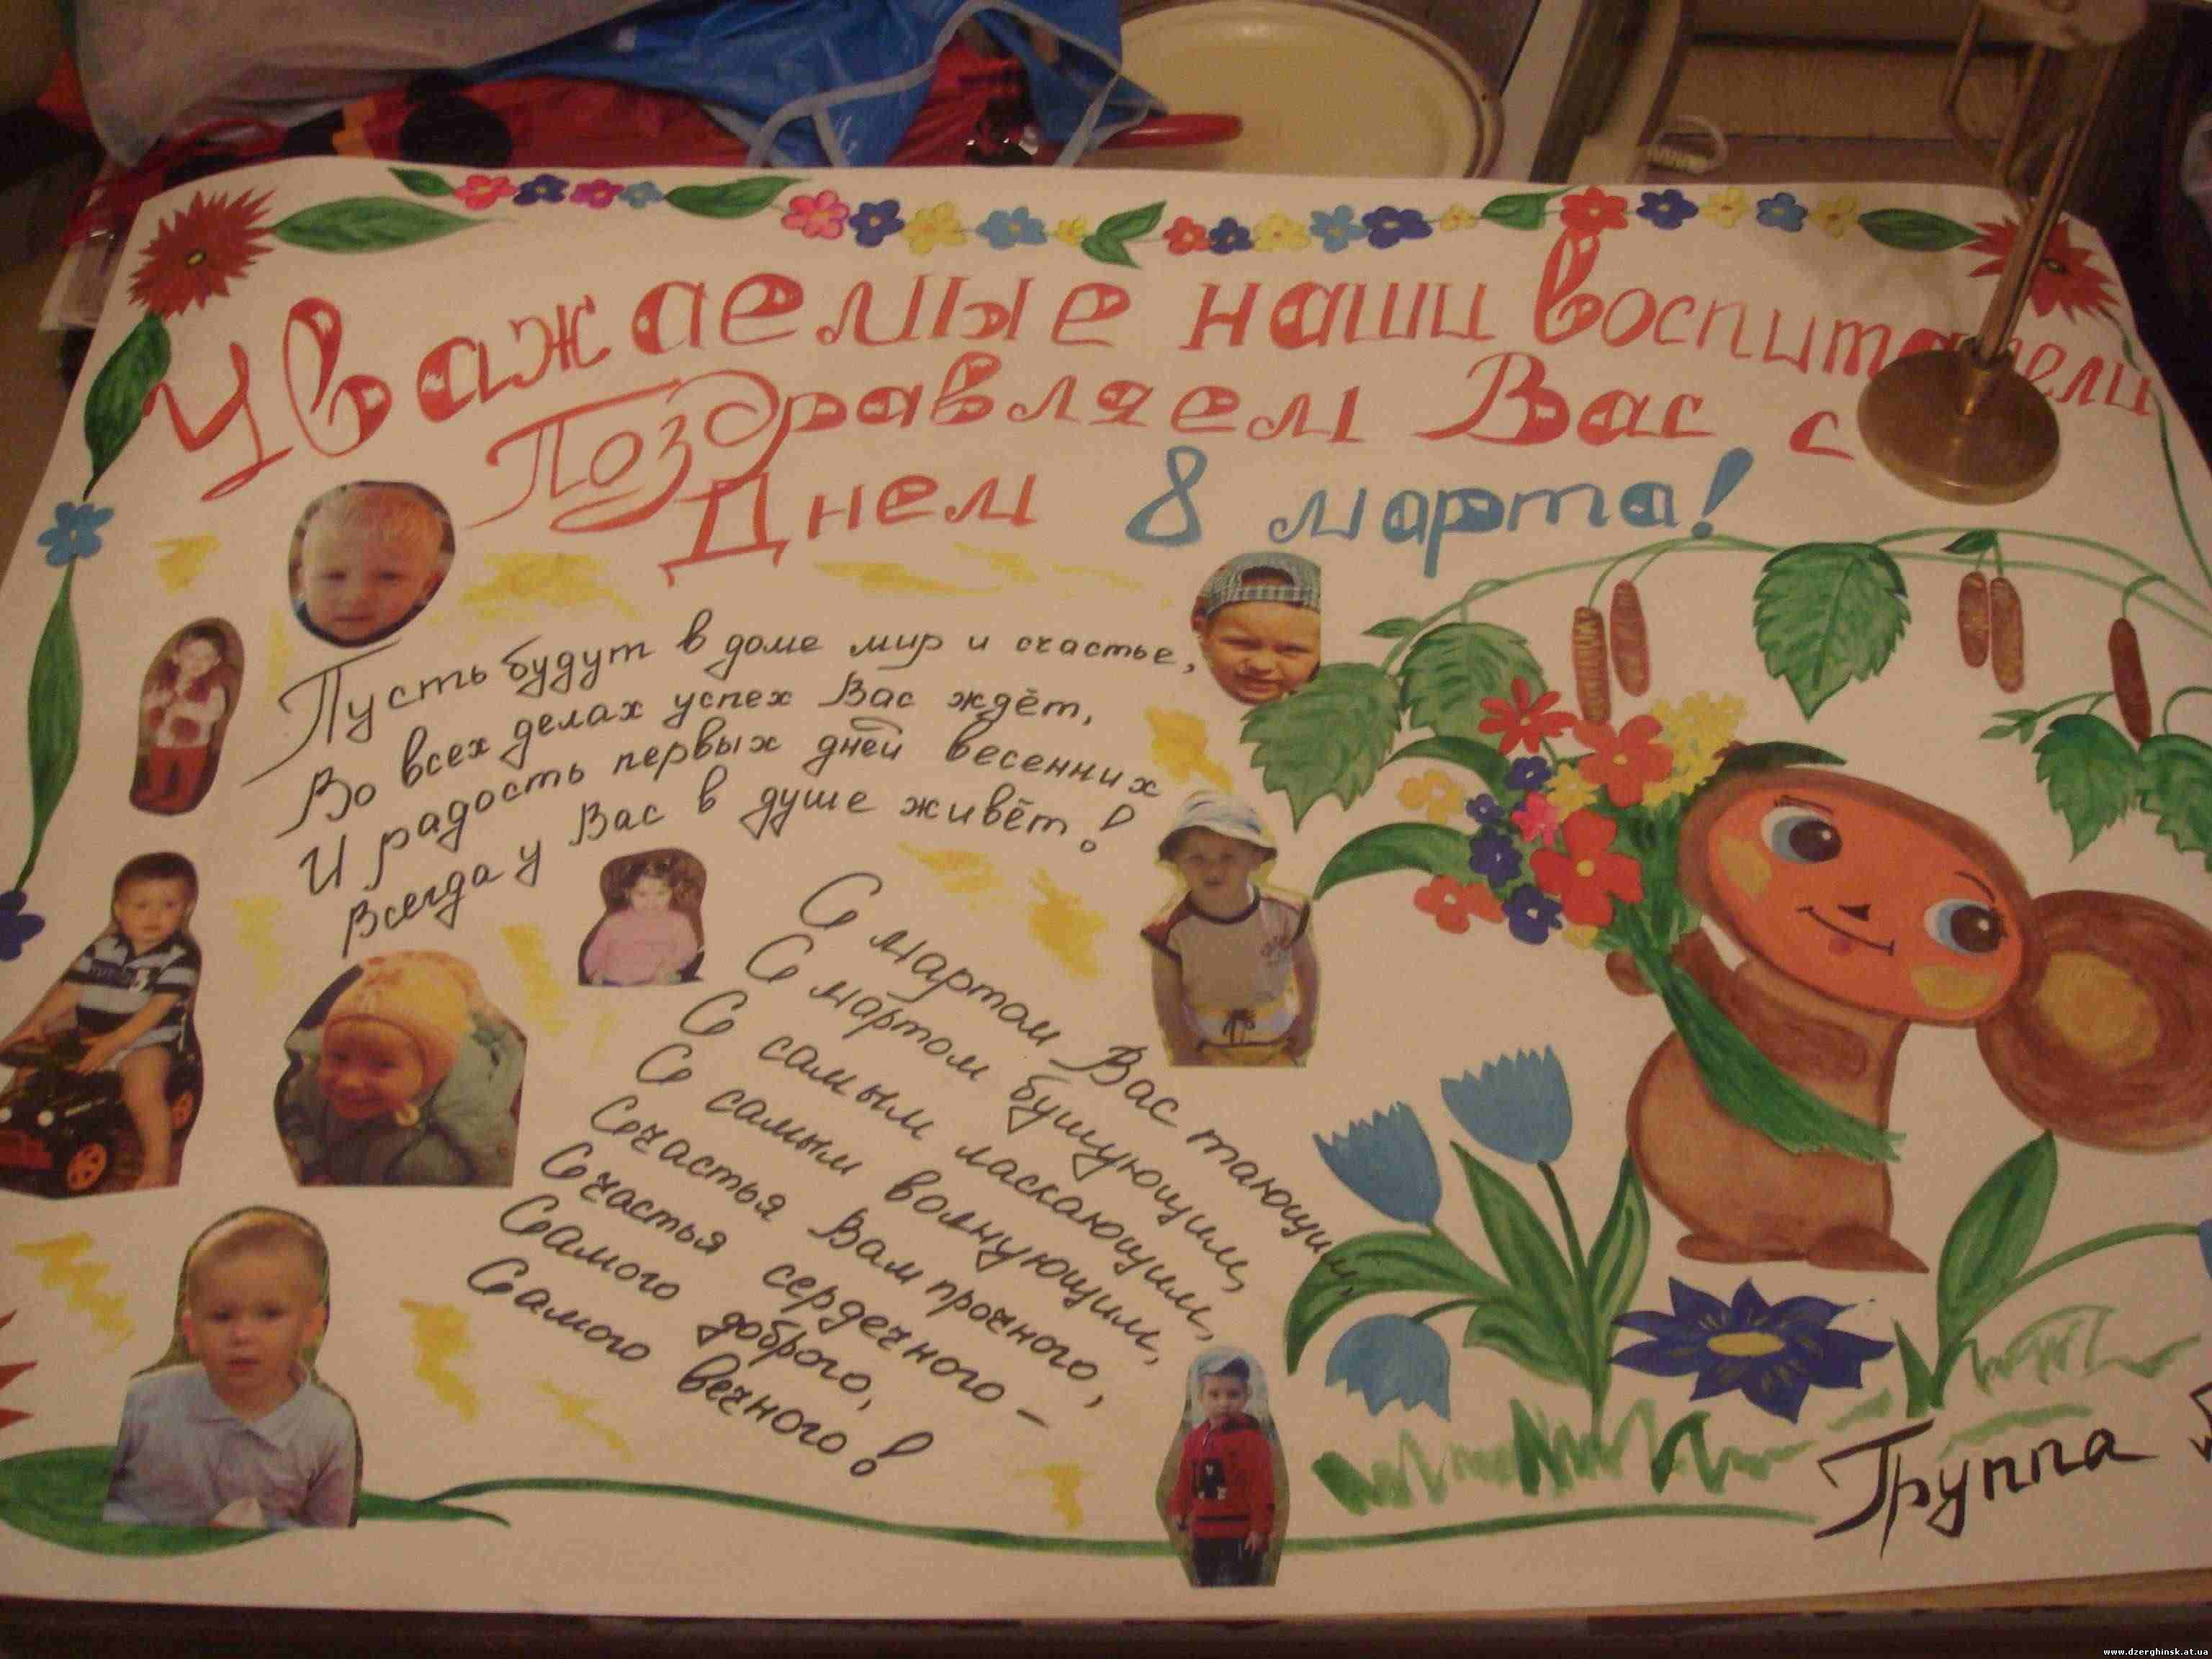 Уважаемые наши воспитатели
Поздравляем Вас с
Днем 8 марта!
Пусть будут в доме мир и счастье,
Во всех делах успех Вас ждёт,
И радость первых дней весенних
Всегда у Вас в душе живёт!
С мартом Вас тающим,
С мартом бушующим,
С самым ласкающим,
С самым волнующим,
Счастья Вам прочного,
Счастья сердечного –
Самого доброго,
Самого вечного!
Группа
www.dzerghinsk.at.ua